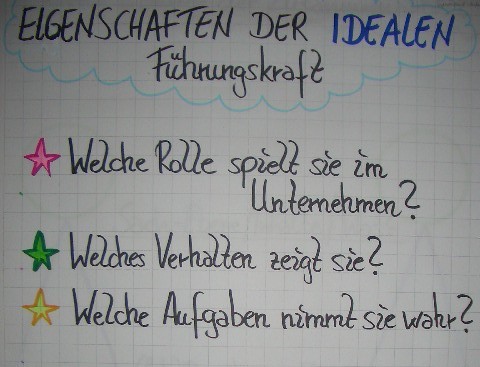 EIGENSCHAFTEN DER IDEALEN
Führungskraft
Welche Rolle spielt sie im
Unternehmen?
Welches Verhalten zeigt sie?
Welche Aufgaben nimmt sie wahr?